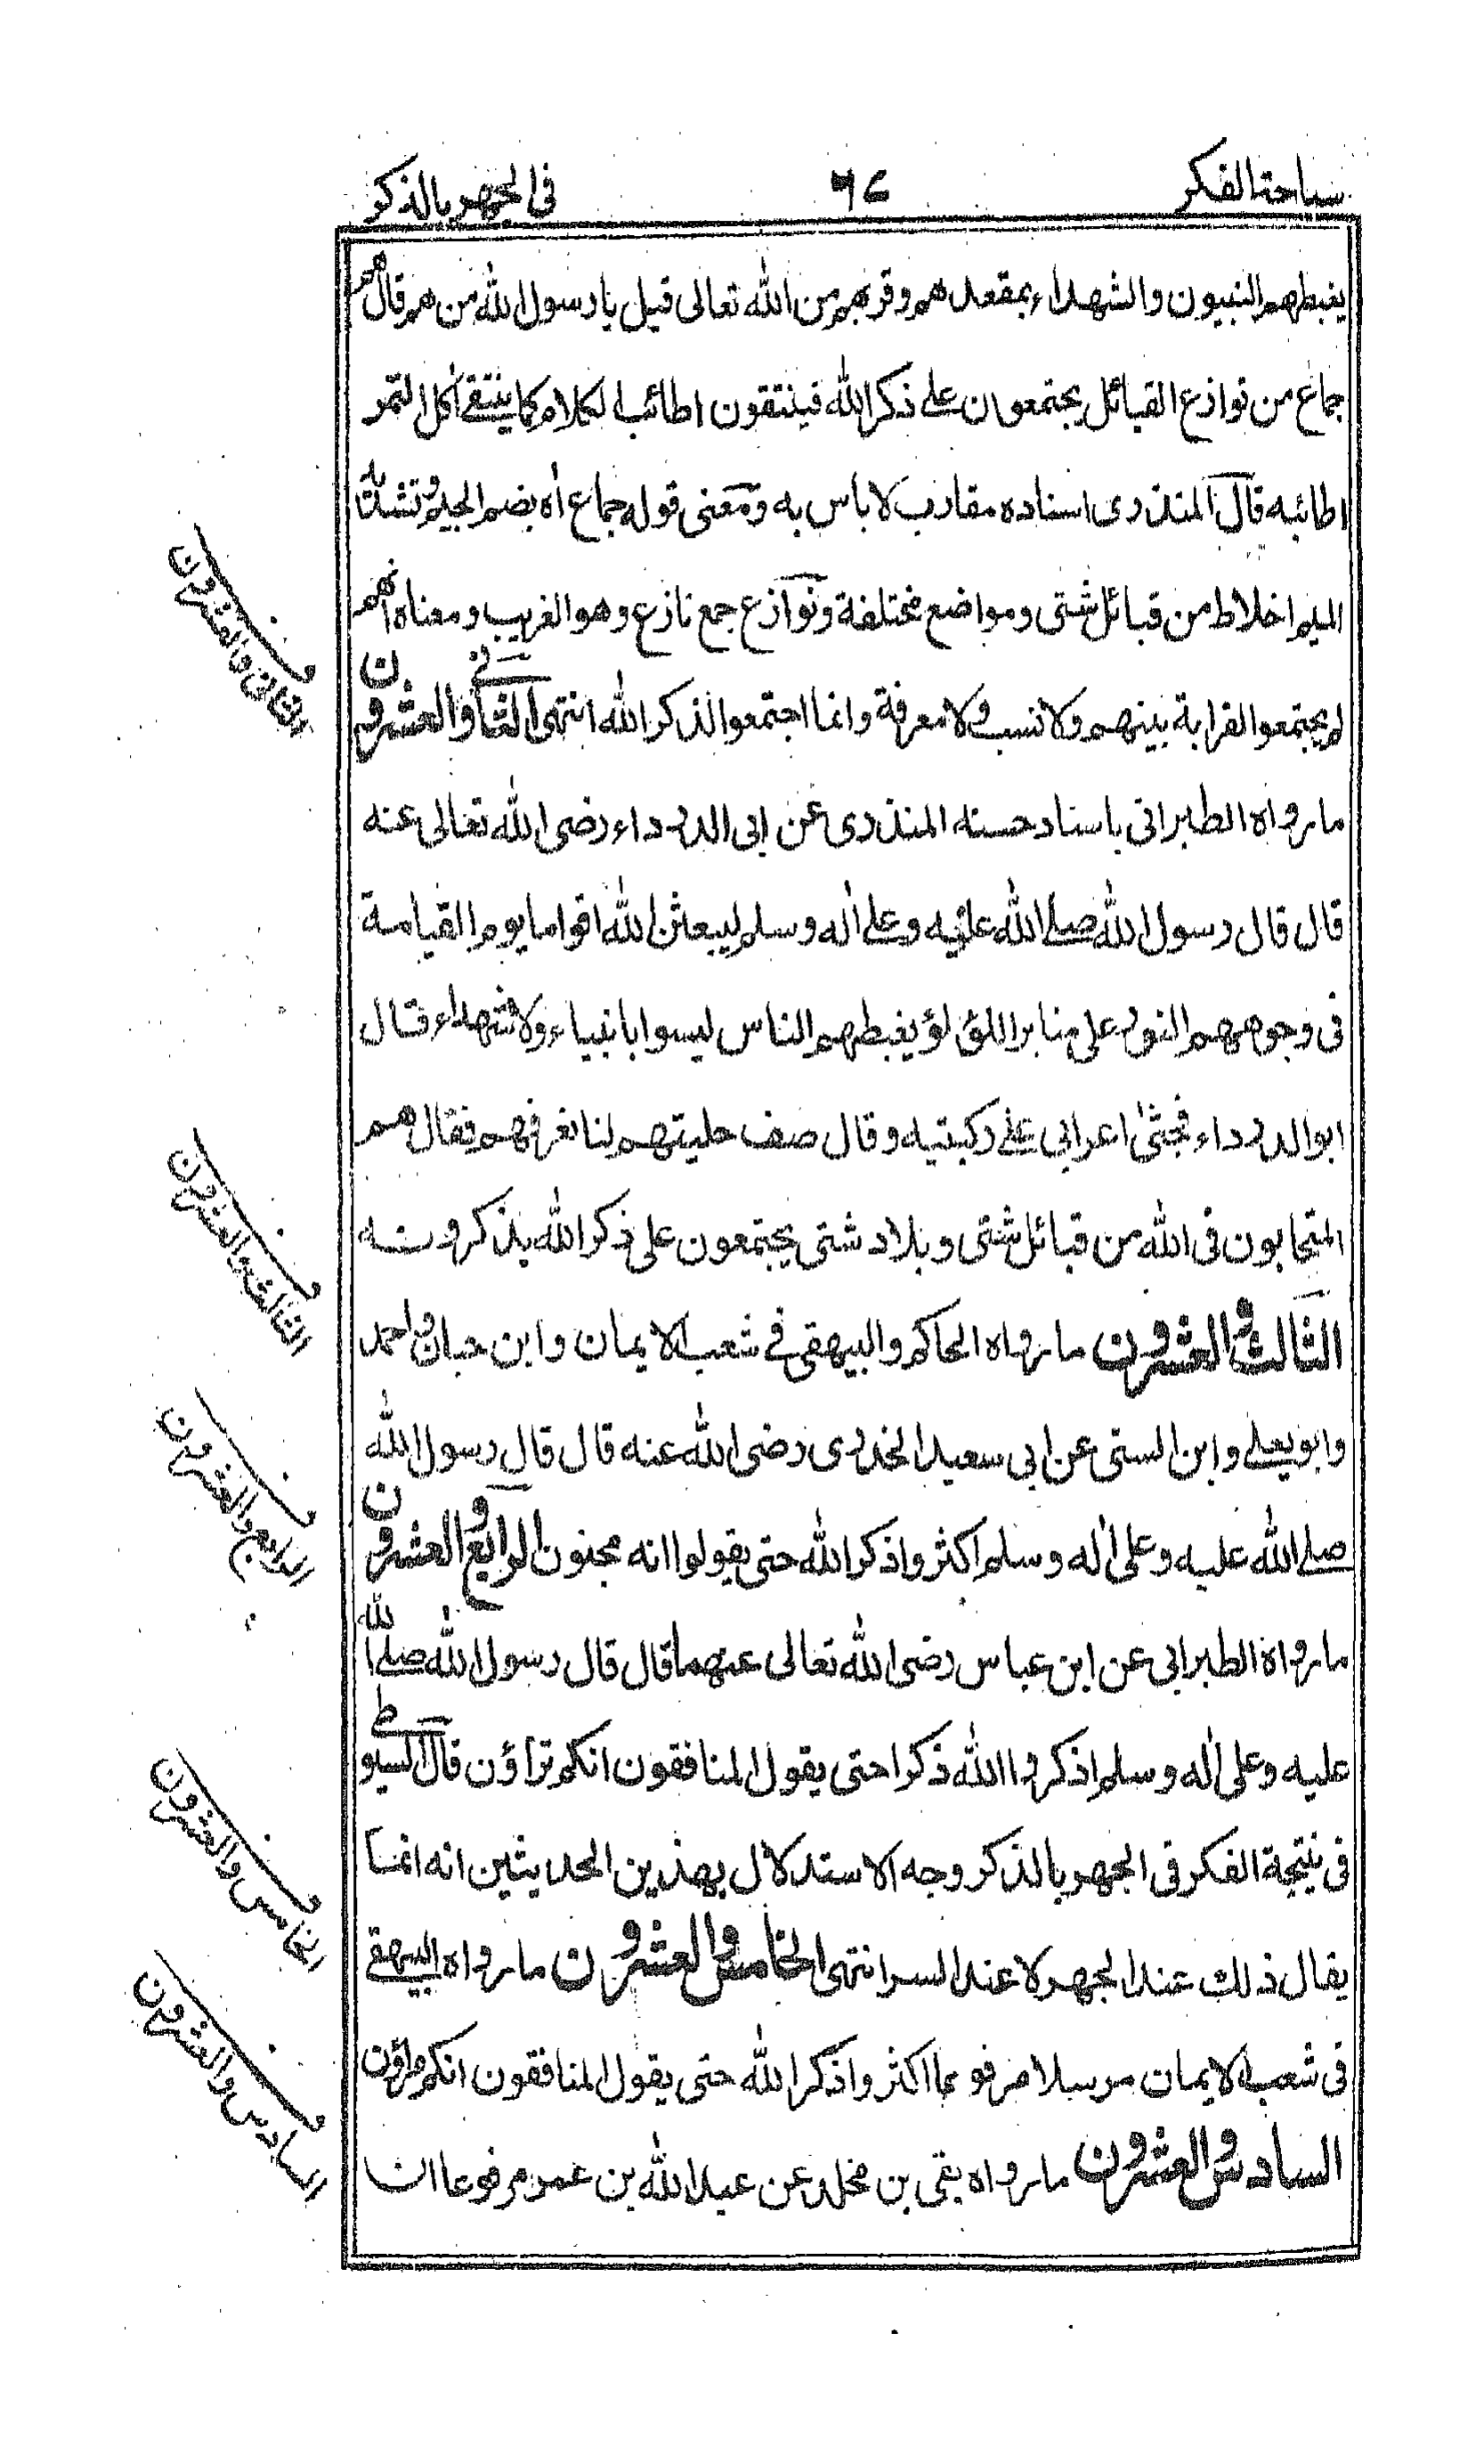 سباحة الفكر ٦٧ فى الجهر بالذكر
يغبطهم النبيون والشهداء بمقعدهم وقربهم من الله تعالى قيل يا رسول الله من هم قال هم
جماع من نوازع القبائل يجتمعون على ذكر الله فينتقون اطائب الكلام كما ينتقى اكل التمر
اطائبه قال المنذرى اسناده مقارب لا باس به ومعنى قوله جماع اه بضم الجيم وتشديد
الميم اخلاط من قبائل شتى ومواضع مختلفة ونوازع جمع نازع وهو الغريب ومعناه انهم
لم يجتمعوا لقرابة بينهم ولا نسب ولا معرفة وانما اجتمعوا لذكر الله انتهى الثانى والعشرون
ما رواه الطبرانى باسناد حسنه المنذرى عن ابى الدرداء رضى الله تعالى عنه
قال قال رسول الله صلے الله عليه وعلے اٰله وسلم ليبعثن الله اقواما يوم القيامة
فى وجوههم النور على منابر اللؤلؤ يغبطهم الناس ليسوا بانبياء ولا شهداء فقال
ابو الدرداء فجثى اعرابى علے ركبتيه وقال صف حليتهم لنا نعرفهم فقال هم
المتحابون فى الله من قبائل شتى وبلاد شتى يجتمعون على ذكر الله يذكرونه
الثالث والعشرون ما رواه الحاكم والبيهقى فے شعب الايمان وابن حبان واحمد
وابو يعلے وابن السنى عن ابى سعيد الخدرى رضى الله عنه قال قال رسول الله
صلے الله عليه وعلى اٰله وسلم اكثروا ذكر الله حتى يقولوا انه مجنون الرابع والعشرون
ما رواه الطبرانى عن ابن عباس رضى الله تعالى عنهما قال قال رسول الله صلے الله
عليه وعلى اٰله وسلم اذكروا الله ذكرا حتى يقول المنافقون انكم تراؤن قال السيوطى
فى نتيجة الفكر فى الجهر بالذكر وجه الاستدلال بهذين الحديثين انه انما
يقال ذلك عند الجهر لا عند السر انتهى الخامس والعشرون ما رواه البيهقے
فى شعب الايمان مرسلا مرفوعا اكثروا ذكر الله حتى يقول المنافقون انكم مراؤن
السادس والعشرون ما رواه بقى بن مخلد عن عبد الله بن عمر مرفوعا ان
الثانى والعشرون
الثالث والعشرون
الرابع والعشرون
الخامس والعشرون
السادس والعشرون